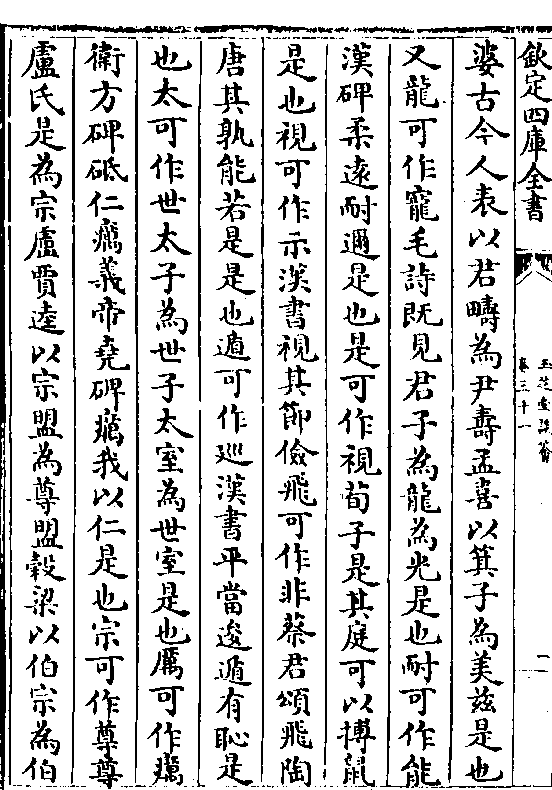 欽定四庫全書
玉芝堂談薈
卷三十一
一
婆古今人表以君疇為尹壽孟喜以箕子為荄兹是也
又龍可作寵毛詩既見君子為龍為光是也耐可作能
漢碑柔遠耐邇是也是可作視荀子是其庭可以搏鼠
是也視可作示漢書視其節儉飛可作非蔡君頌飛陶
唐其孰能若是是也遁可作巡漢書平當逡遁有恥是
也太可作世太子為世子太室為世室是也厲可作癘
衛方碑砥仁癘義帝堯碑癘我以仁是也宗可作尊尊
盧氏是為宗盧賈逵以宗盟為尊盟穀梁以伯宗為伯